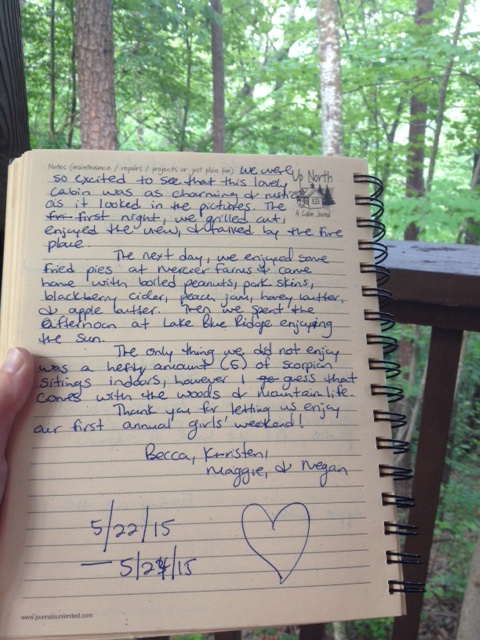 Notes (maintenance / repairs / projects or just plain fun) we were
so excited to see that this lovely
cabin was as charming & rustic
as it looked in the pictures. The
first night, we grilled out,
enjoyed the view, & talked by the fire
place.
The next day, we enjoyed some
fried pies at Mercier farms & came
home with boiled peanuts, pork skins,
blackberry cider, peach jam, honey butter,
& apple butter. Then we spent the
afternoon at Lake Blue Ridge enjoying
the sun.
The only thing we did not enjoy
was a hefty amount (5) of scorpian
sitings indoors, however I guess that
comes with the woods & mountain life.
Thank you for letting us enjoy
our first annual girls' weekend!
Becca, Kristen,
Maggie, & Megan
5/22/15
— 5/24/15
Up North
A Cabin Journal
www.journalsunlimited.com